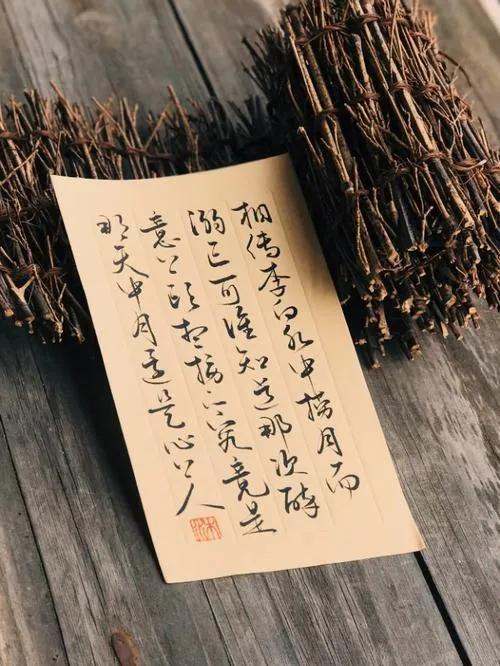 相传李白水中捞月而
溺亡可谁知道那次醉
意上头想捞的究竟是
那天中月还是心上人